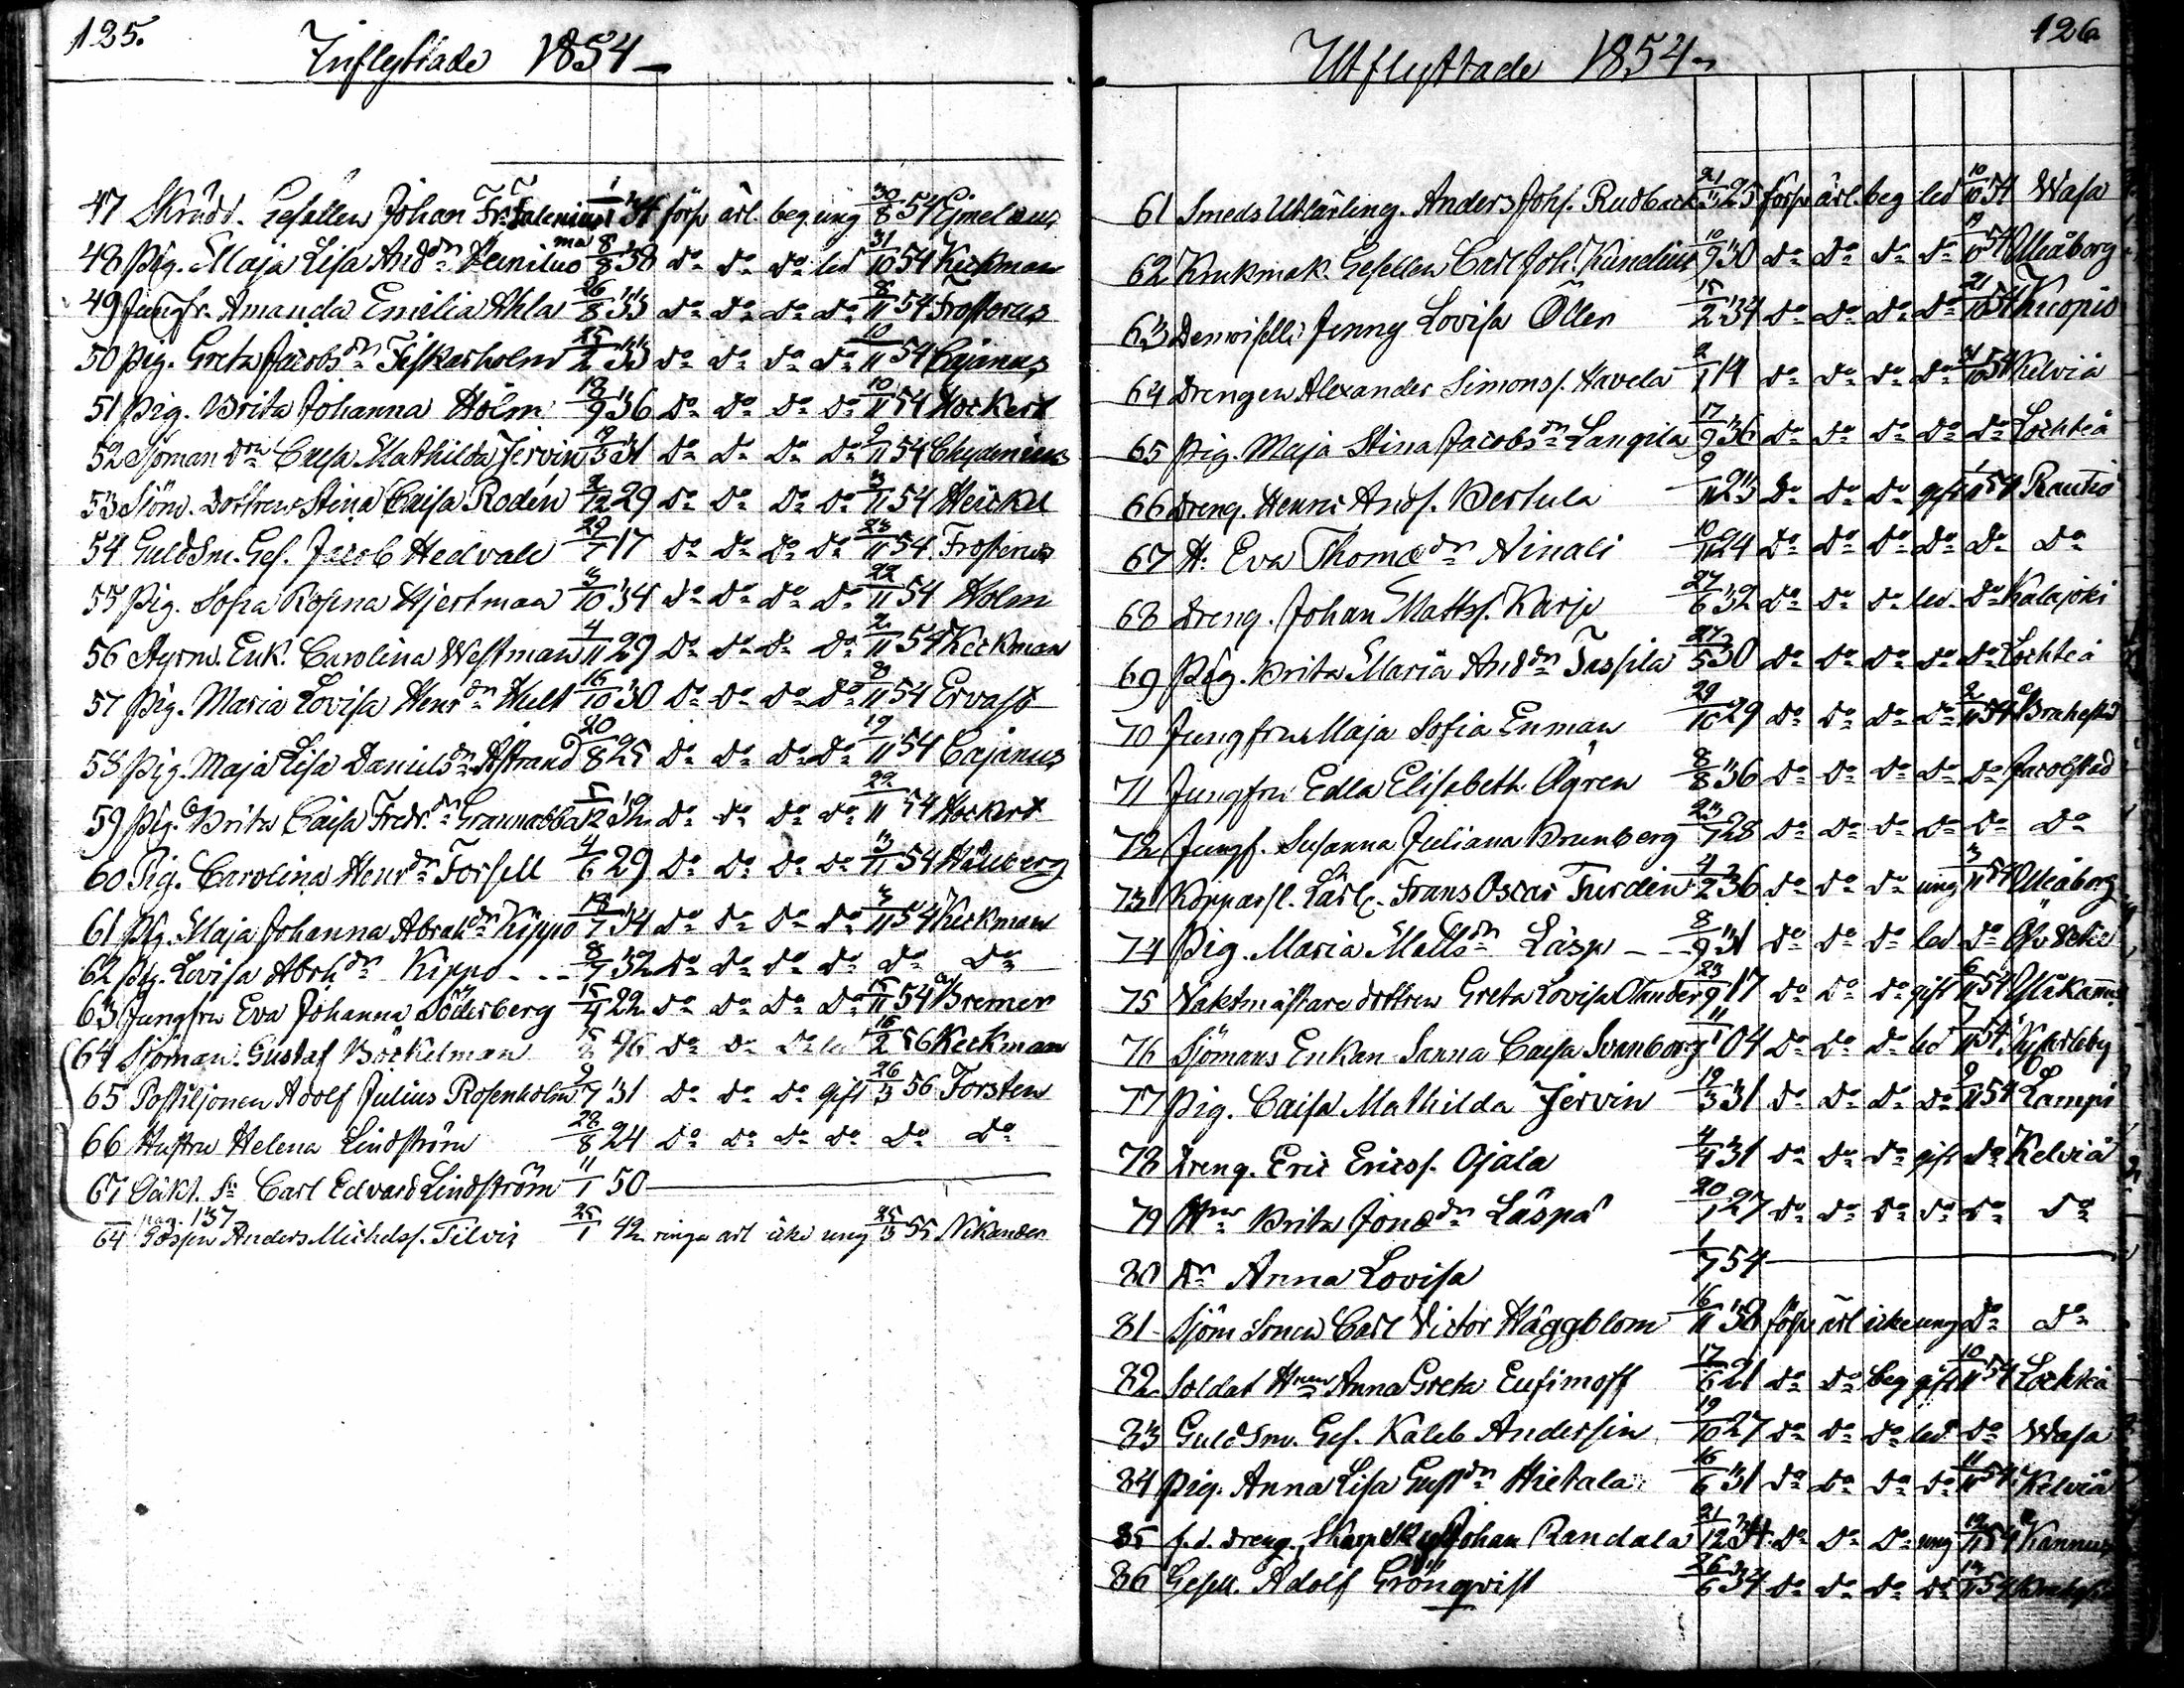 125.
Inflyttade 1854
47 Skrädd. Gesellen Johan Fr. Falenius 1/1 34 försv ärl. beg. ung 30/8 54 Gmelaus
48 Pig. Maja Lisa And dr 8/8 38 do do do led 31/10 54 Keckman
49 Jungfr. Amanda Emelia Ahla 26/8 33 do do do do 8/11 54 Frosterus
50 Pig. Greta Jacobs dr Fiskarholm 25/2 33 do do do do 10/11 54 Cajanus
51 Pig. Brita Johanna Holm 13/9 36 do do do do 10/11 54 Hockert
52 Sjöman dr Caisa Mathilda Jervin 19/3 31 do do do do 9/11 54 Chydenius
53 Sjöm. dottren Stina Caisa Rodén 2/12 29 do do do do 3/11 54 Heickel
54 Guldsm. Ges. Jacob Hedvall 29/7 17 do do do do 23/11 54 Frosterus
55 Pig. Sofia Rosina Hjertman 3/10 34 do do do do 22/11 54 Holm
56 Enk. Carolina Westman 4/11 29 do do do do 2/11 54 Keckman
57 Pig. Maria Lovisa Henr dr Hult 16/10 30 do do do do 8/11 54 Ervast
58 Pig. Maja Lisa Daniels dr Åstrand 20/8 25 do do do do 19/11 54 Cajanus
59 Pig. Brita Caisa Fredr. dr Grannabba 5/12 32 do do do do 22/11 54 Hockert
60 Pig. Carolina Henr dr Forsell 4/6 29 do do do do 3/11 54 Hällberg
61 Pig. Maja Johanna Abrah dr Kippo 18/7 34 do do do do 3/11 54 Keckman
62 Pig. Lovisa Abrh dr Kippo - - - 8/7 32 do do do do do do
63 Jungfru Eva Johanna Söderberg 15/4 22 do do do do 15/11 54 Bremer
64 Sjöman Gustaf Böckelman 5/8 96 do do do led 16/2 56 Keckman
65 Postiljonen Adolf Julius Rosenholm 9/7 31 do do do gift 26/3 56 Forsten
66 Hustru Helena Lindström 28/8 24 do do do do do do
67 Oäkt. Sn Carl Edvard Lindström 11/1 50
pag. 137
64 Gossen Anders Michelss. Tilvis 25/1 42 ringa ärl icke ung 25/3 55 Nikander
126
Utflyttade 1854
61 Smeds Utlärling. Anders Johs. Rudback 21/11 25 försv ärl. beg led 10/10 54 Wasa
62 Krukmak. Gesellen Carl Joh. Kundelius 10/9 30 do do do do 19/10 54 Uleåborg
63 Demoiselle Jenny Lovisa Öller 15/2 34 do do do do 21/10 54 Kuopio
64 Drengen Alexander Simonss. Havela 2/1 14 do do do do 31/10 54 Kelviå
65 Pig. Maja Stina Jacobs dr Langila 17/9 36 do do do do do Lochteå
66 Dreng. Henric Ands. Bertula 9/11 23 do do do gift 1/11 54 Rautio
67 H: Eva Thomæ dr Ninali 10/11 24 do do do do do do
68 Dreng. Johan Mattss. Karje 27/6 32 do do do led. do Kalajoki
69 Pig. Brita Maria And dr Jaspila 27/5 30 do do do do do Lochteå
70 Jungfru Maja Sofia Enman 29/10 29 do do do do 2/11 54 Brahestd
71 Jungfru Edla Elisabeth Ögren 8/8 36 do do do do do Jacobstad
72 Jungf. Susanna Juliana Brunberg 23/7 28 do do do do do do
73 Kopparsl. Lärl. Frans Oscar Furdein 4/2 36 do do do ung 3/11 54 Uleåborg
74 Pig. Maria Matts dr Läsp - - 8/9 31 do do do led do
75 Vaktmästare dottren Greta Lovisa Olander 23/9 17 do do do gift 6/11 54
76 Sjömans Enkan Sanna Caisa Svanborg 11/1 04 do do do led 7/11 54
77 Pig. Caisa Mathilda Jervin 19/3 31 do do do do 9/11 54 Lampi
78 Dreng. Eric Ericss. Ojala 4/4 31 do do do gift do Kelviå
79 Hru Brita Jonæ dr Läspä 20/1 27 do do do do do do
80 Dr Anna Lovisa 1/7 54
81 Sjöm Sonen Carl Victor Häggblom 16/11 38 försv ärl icke ung do do
82 Soldat Hru Anna Greta Eufimoff 17/6 21 do do beg gift 10/11 54 Lochteå
83 Guldsm. Ges. Kaleb Andersin 19/10 27 do do do led do Wasa
84 Pig. Anna Lisa Gust dr Hietala 16/6 31 do do do do 11/11 54 Kelviå
85 f.d. dreng. Johan Randala 21/12 34 do do do ung 12/11 54 Kannus
86 Gesell. Adolf Grönqvist 26/6 34 do do do do 13/11 54